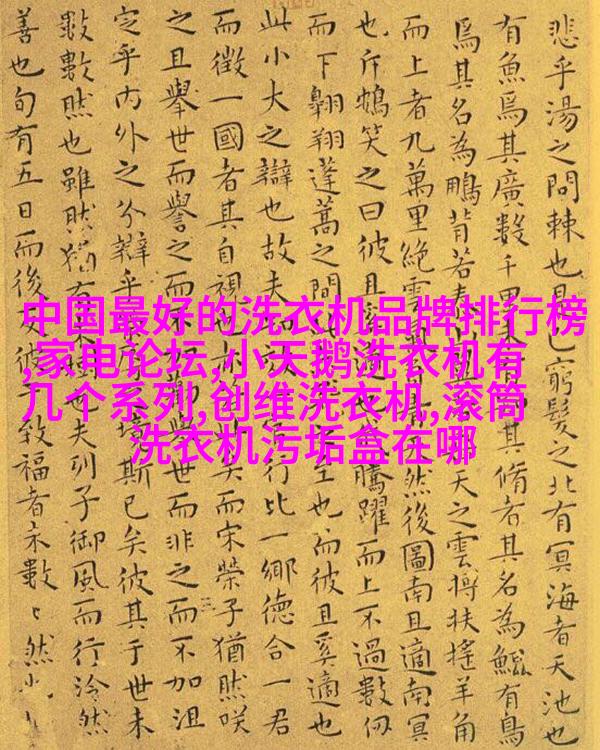 悲乎湯之問棘也是已窮髮之北有冥海者天池也
有魚焉其廣數千里未有其脩者其名為鯤有鳥
焉其名為鵬背若泰天之雲摶扶搖羊角
而上者九萬里絕雲然後圖南且適南冥
也斥鴳笑之曰彼且奚騰躍而上不過數仞
而下翱翔蓬蒿之間至也而彼且奚適也
此小大之辯也故夫知行比一鄉德合一君
而徵一國者其自視也矣而宋榮子猶然咲
之且舉世而譽之而不勸舉世而非之而不加沮
定乎內外之分辯乎境斯已矣彼其于世未
數數然也雖然猶有未也夫列子御風而行泠然
善也旬有五日而後反彼致福者未數〻然
中国最好的洗衣机品牌排行榜
,家电论坛,小天鹅洗衣机有
几个系列,创维洗衣机,滚筒
洗衣机污垢盒在哪